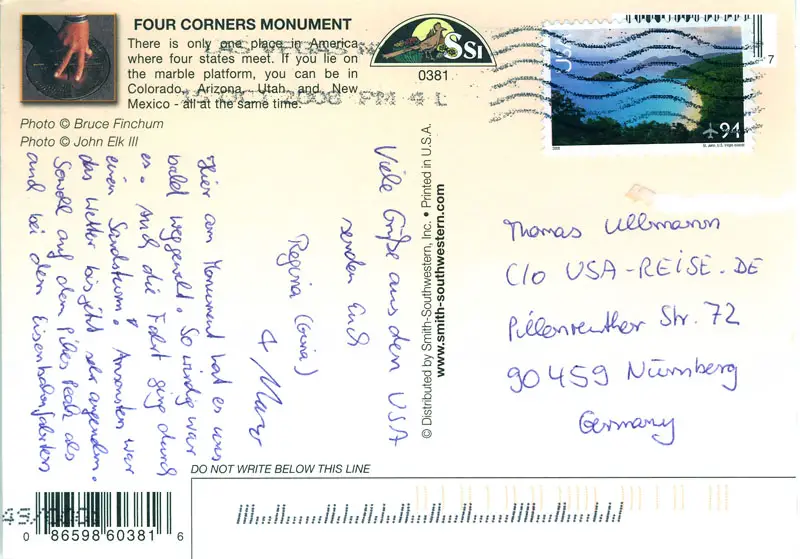 FOUR CORNERS MONUMENT
There is only one place in America
where four states meet. If you lie on
the marble platform, you can be in
Colorado, Arizona, Utah and New
Mexico - all at the same time.
Photo © Bruce Finchum
Photo © John Elk III
SSI
0381
LAS VEGAS NV
2008 PM 4 L
USA
94
2008
St. John, U.S. Virgin Islands
7
Hier am Monument hat es uns
bald weggeweht. So windig war
es. Auch die Fahrt ging durch
einen Sandsturm. Ansonsten war
das Wetter bis jetzt sehr angenehm.
Sowohl auf dem Pikes Peak als
auch bei den Eisenbahnfahrten
Viele Grüße aus den USA
senden Euch
Regina (Gina)
+
© Distributed by Smith-Southwestern, Inc. • Printed in U.S.A.
www.smith-southwestern.com
Thomas Ullmann
C/O USA-REISE.DE
Pillenreuther Str. 72
90459 Nürnberg
Germany
DO NOT WRITE BELOW THIS LINE
0 86598 60381 6